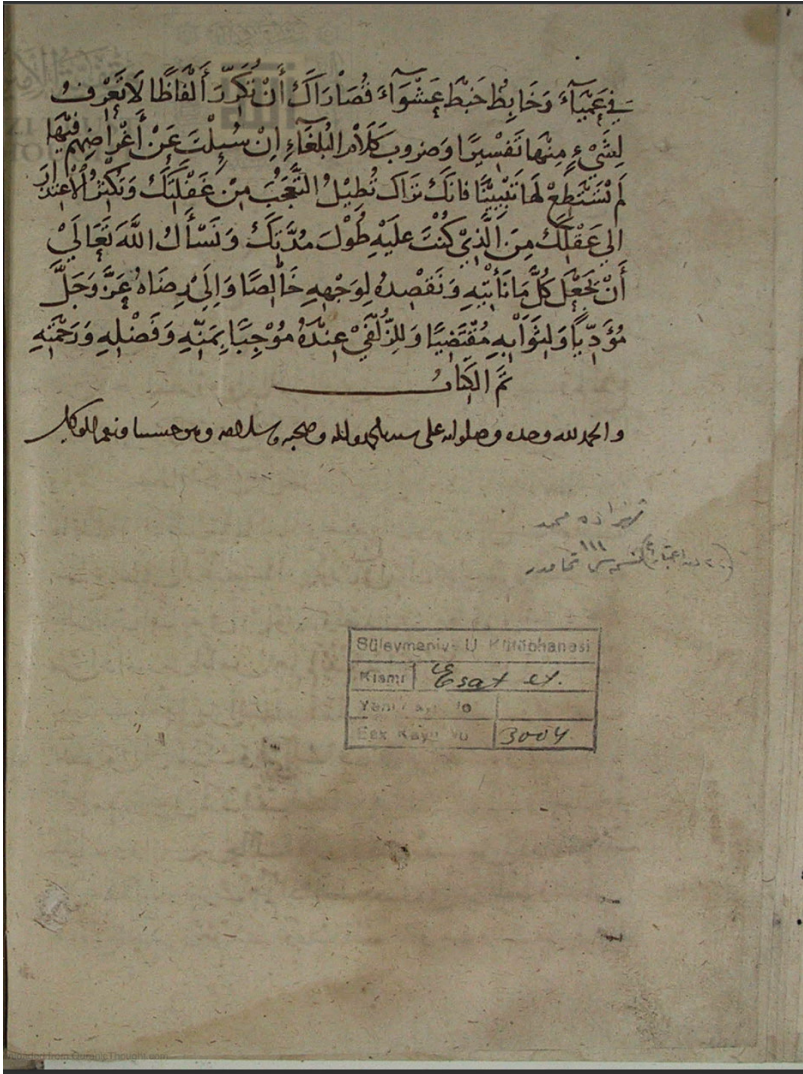 في عَمْيَآءَ وَخَابِطُ خَبْطَ عَشْوَآءَ قُصَارَاكَ أَنْ تُكَرِّرَ أَلْفَاظًا لَا تَعْرِفُ
لِشَيْءٍ مِنْهَا تَفْسِيرًا وَضروب كَلَامِ الْبُلَغَآءِ اِنْ سُئِلْتَ عَنْ أَغْرَاضِهِم فِيْهَا
لَمْ تَسْتَطِعْ لَهَا تَبْيِيْنًا فانَكَ تَرَاكَ تُطِيْلُ التَّعَجُّبَ مِنْ غَفْلَتِكَ وَتُكْثِرُ الْاِعْتِذَارَ
اِلي عَقْلِكَ مِنَ الَّذِيْ كُنْتَ علَيْهِ طُوْلَ مُدَّتِكَ وَنَسْأَلُ اللَّهَ تَعَالَيْ
أَنْ يَجْعَلَ كُلَّ مَا نَأْتِيْهِ وَنَقْصِدُهُ لِوَجْهِهِ خَالِصًا وَاِلَيْ رِضَاهُ عَزَّ وَجَلَّ
مُؤَدِّيًا وَلِثَوَابِهِ مُقْتَضِيًا وَلِلزُّلْفَيْ عِنْدَهُ مُوْجِبًا بِمَنِّهِ وَفَضْلِهِ وَرَحْمَتِهِ
تَمَّ الكِتَابُ
والحمد لله وحده وصلواته على سيدنا محمد واله وصحبه وسلامه وهو حسبنا ونعم الوكيل
شهرزاده محمد
Süleymaniye U. Kütüphanesi
Kısmı Esat ef.
Yeni Kayıt No
Eski Kayıt No 3004